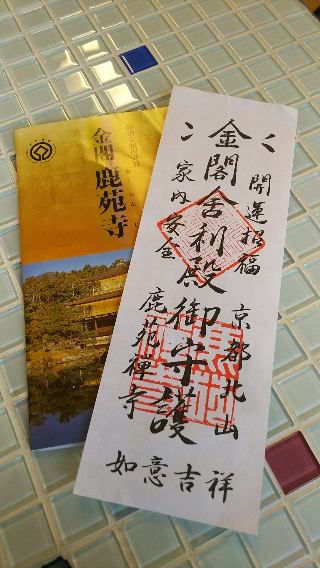 金閣 鹿苑寺
開運招福
金閣舎利殿御守護
家内安全
京都北山
鹿苑禅寺
如意吉祥